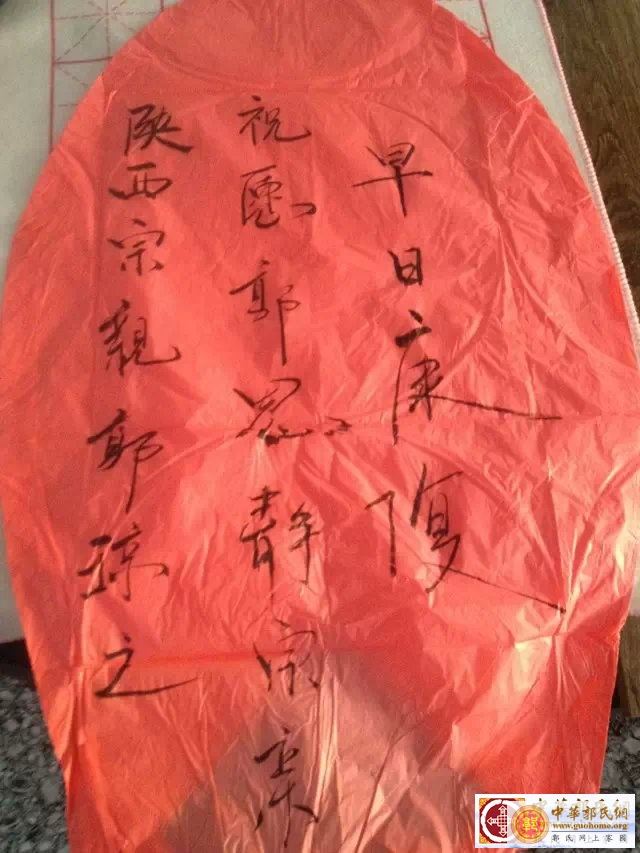 陕西宗親郭琼之
祝愿郭思静宗亲
早日康復
中華郭氏網
www.guohome.org
郭氏网上家園